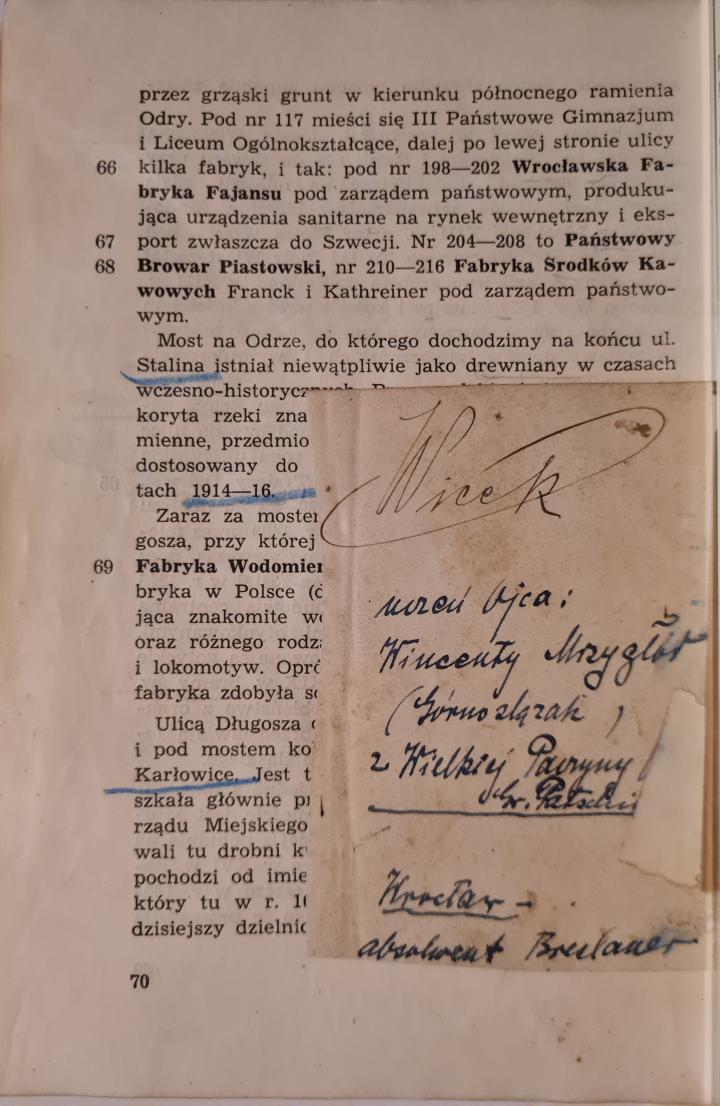 przez grząski grunt w kierunku północnego ramienia
Odry. Pod nr 117 mieści się III Państwowe Gimnazjum
i Liceum Ogólnokształcące, dalej po lewej stronie ulicy
66 kilka fabryk, i tak: pod nr 198—202 Wrocławska Fa-
bryka Fajansu pod zarządem państwowym, produku-
jąca urządzenia sanitarne na rynek wewnętrzny i eks-
67 port zwłaszcza do Szwecji. Nr 204—208 to Państwowy
68 Browar Piastowski, nr 210—216 Fabryka Środków Ka-
wowych Franck i Kathreiner pod zarządem państwo-
wym.
Most na Odrze, do którego dochodzimy na końcu ul.
Stalina istniał niewątpliwie jako drewniany w czasach
wczesno-historycznych
koryta rzeki zna
mienne, przedmio
dostosowany do
tach 1914—16.
Zaraz za moste
gosza, przy której
69 Fabryka Wodomie
bryka w Polsce
jąca znakomite
oraz różnego rodz
i lokomotyw. Opr
fabryka zdobyła
Ulicą Długosza
i pod mostem ko
Karłowice. Jest t
szkała głównie
rządu Miejskiego
wali tu drobni
pochodzi od imie
który tu w r.
dzisiejszy dzielni
70
Wicek
uczeń Ojca:
Wincenty Mrzygłód
(Górnoślązak)
z Wielkiej
Wrocław -
absolwent Breslauer